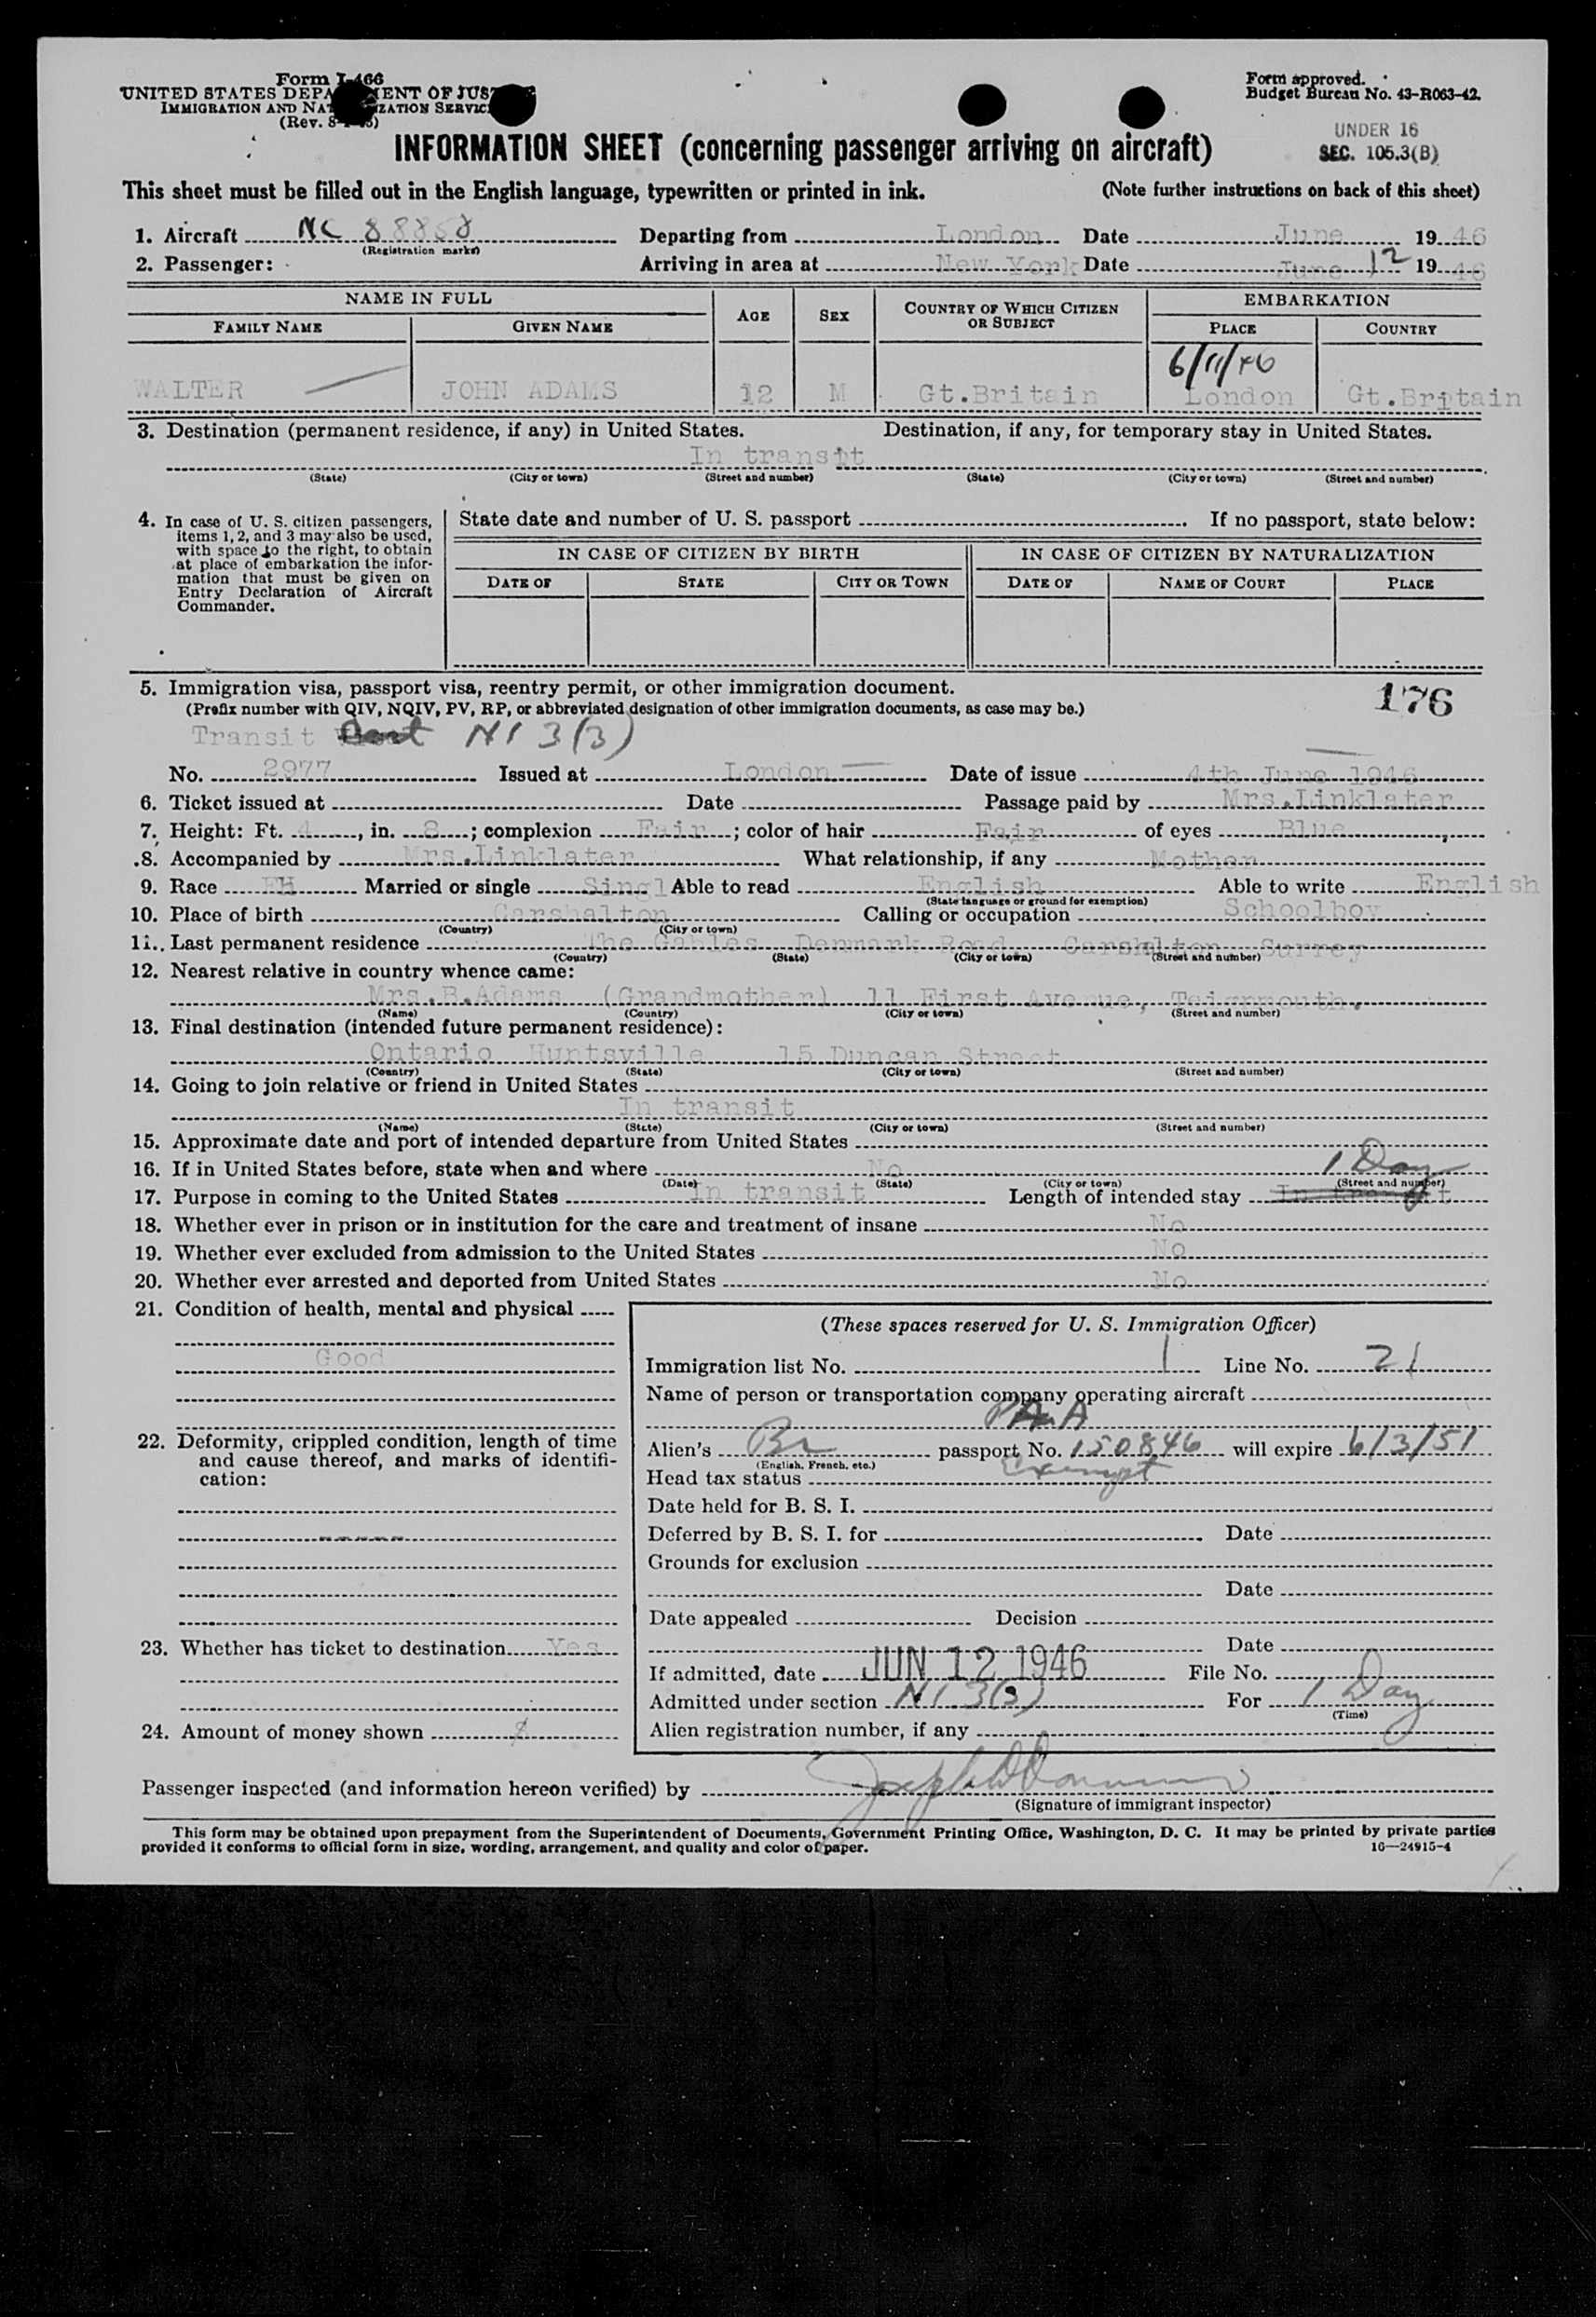 Form I-466
UNITED STATES DEPA MENT OF JUS
IMMIGRATION AND NAT IZATION SERVIC
(Rev. 8-
Form approved.
Budget Bureau No. 43-R063-42.
UNDER 16
SEC. 105.3(B)
INFORMATION SHEET (concerning passenger arriving on aircraft)
This sheet must be filled out in the English language, typewritten or printed in ink. (Note further instructions on back of this sheet)
1. Aircraft NC 88858 Departing from London Date June 1946
(Registration marks)
2. Passenger: Arriving in area at New York Date June 12 1946
NAME IN FULL AGE SEX COUNTRY OF WHICH CITIZEN OR SUBJECT EMBARKATION
FAMILY NAME GIVEN NAME PLACE COUNTRY
6/11/46
WALTER JOHN ADAMS 12 M Gt.Britain London Gt.Britain
3. Destination (permanent residence, if any) in United States. Destination, if any, for temporary stay in United States.
In transit
(State) (City or town) (Street and number) (State) (City or town) (Street and number)
4. In case of U. S. citizen passengers, items 1, 2, and 3 may also be used, with space to the right, to obtain at place of embarkation the information that must be given on Entry Declaration of Aircraft Commander.
State date and number of U. S. passport . If no passport, state below:
IN CASE OF CITIZEN BY BIRTH IN CASE OF CITIZEN BY NATURALIZATION
DATE OF STATE CITY OR TOWN DATE OF NAME OF COURT PLACE
5. Immigration visa, passport visa, reentry permit, or other immigration document. 176
(Prefix number with QIV, NQIV, PV, RP, or abbreviated designation of other immigration documents, as case may be.)
Transit Cert NI 3(3)
No. 2977 Issued at London Date of issue 4th June 1946
6. Ticket issued at Date Passage paid by Mrs.Linklater
7. Height: Ft. 4, in. 8; complexion Fair; color of hair Fair of eyes Blue
8. Accompanied by Mrs.Linklater What relationship, if any Mother
9. Race EH Married or single Singl Able to read English Able to write English
(State language or ground for exemption)
10. Place of birth Carshalton Calling or occupation Schoolboy
(Country) (City or town)
11. Last permanent residence The Gables Denmark Road Carshalton Surrey
(Country) (State) (City or town) (Street and number)
12. Nearest relative in country whence came:
Mrs.B.Adams (Grandmother) 11 First Avenue, Teignmouth.
(Name) (Country) (City or town) (Street and number)
13. Final destination (intended future permanent residence):
Ontario Huntsville 15 Duncan Street
(Country) (State) (City or town) (Street and number)
14. Going to join relative or friend in United States
In transit
(Name) (State) (City or town) (Street and number)
15. Approximate date and port of intended departure from United States
16. If in United States before, state when and where No 1 Day
(Date) (State) (City or town) (Street and number)
17. Purpose in coming to the United States In transit Length of intended stay In transit
18. Whether ever in prison or in institution for the care and treatment of insane No
19. Whether ever excluded from admission to the United States No
20. Whether ever arrested and deported from United States No
21. Condition of health, mental and physical
Good
22. Deformity, crippled condition, length of time and cause thereof, and marks of identification:
-----
23. Whether has ticket to destination Yes
24. Amount of money shown
(These spaces reserved for U. S. Immigration Officer)
Immigration list No. 1 Line No. 21
Name of person or transportation company operating aircraft
PAA
Alien's Br passport No. 150846 will expire 6/3/51
(English, French, etc.)
Head tax status Exempt
Date held for B. S. I.
Deferred by B. S. I. for Date
Grounds for exclusion
Date
Date appealed Decision
Date
If admitted, date JUN 12 1946 File No.
Admitted under section NI 3(3) For 1 Day
(Time)
Alien registration number, if any
Passenger inspected (and information hereon verified) by
(Signature of immigrant inspector)
This form may be obtained upon prepayment from the Superintendent of Documents, Government Printing Office, Washington, D. C. It may be printed by private parties
provided it conforms to official form in size, wording, arrangement, and quality and color of paper. 16—24915-4